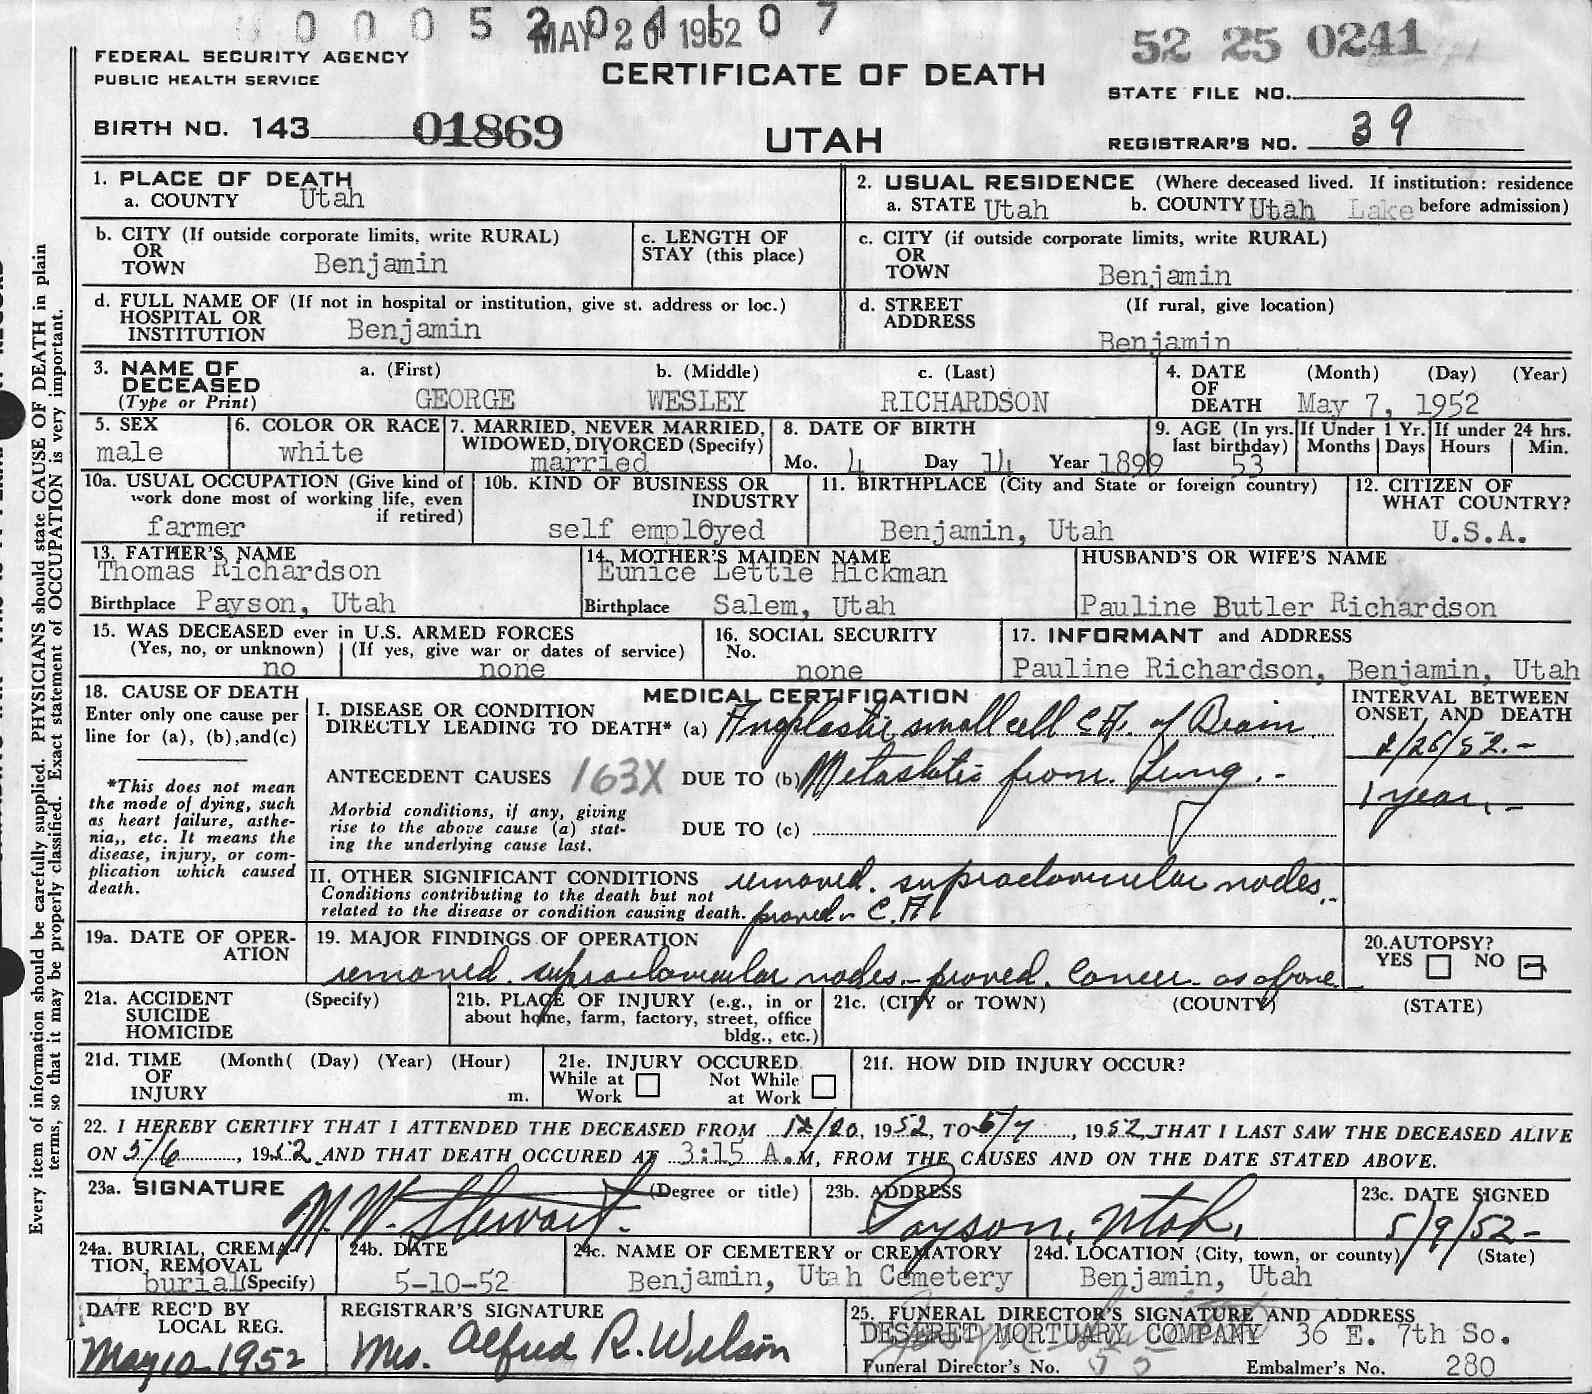 0 0 0 5 2 0 4 1 0 7
MAY 20 1952
52 25 0241
FEDERAL SECURITY AGENCY
PUBLIC HEALTH SERVICE
CERTIFICATE OF DEATH
STATE FILE NO.
BIRTH NO. 143 01869
UTAH
REGISTRAR'S NO. 39
Every item of information should be carefully supplied. PHYSICIANS should state CAUSE OF DEATH in plain
terms, so that it may be properly classified. Exact statement of OCCUPATION is very important.
1. PLACE OF DEATH
a. COUNTY Utah
2. USUAL RESIDENCE (Where deceased lived. If institution: residence
a. STATE Utah b. COUNTY Utah Lake before admission)
b. CITY (If outside corporate limits, write RURAL)
OR
TOWN Benjamin
c. LENGTH OF
STAY (this place)
c. CITY (if outside corporate limits, write RURAL)
OR
TOWN Benjamin
d. FULL NAME OF (If not in hospital or institution, give st. address or loc.)
HOSPITAL OR
INSTITUTION Benjamin
d. STREET (If rural, give location)
ADDRESS
Benjamin
3. NAME OF
DECEASED
(Type or Print)
a. (First) b. (Middle) c. (Last)
GEORGE WESLEY RICHARDSON
4. DATE (Month) (Day) (Year)
OF
DEATH May 7, 1952
5. SEX
male
6. COLOR OR RACE
white
7. MARRIED, NEVER MARRIED,
WIDOWED, DIVORCED (Specify)
married
8. DATE OF BIRTH
Mo. 4 Day 14 Year 1899
9. AGE (In yrs.
last birthday)
53
If Under 1 Yr.
Months Days
If under 24 hrs.
Hours Min.
10a. USUAL OCCUPATION (Give kind of
work done most of working life, even
if retired)
farmer
10b. KIND OF BUSINESS OR
INDUSTRY
self employed
11. BIRTHPLACE (City and State or foreign country)
Benjamin, Utah
12. CITIZEN OF
WHAT COUNTRY?
U.S.A.
13. FATHER'S NAME
Thomas Richardson
Birthplace Payson, Utah
14. MOTHER'S MAIDEN NAME
Eunice Lettie Hickman
Birthplace Salem, Utah
HUSBAND'S OR WIFE'S NAME
Pauline Butler Richardson
15. WAS DECEASED ever in U.S. ARMED FORCES
(Yes, no, or unknown) (If yes, give war or dates of service)
no none
16. SOCIAL SECURITY
No.
none
17. INFORMANT and ADDRESS
Pauline Richardson, Benjamin, Utah
18. CAUSE OF DEATH
Enter only one cause per
line for (a), (b),and(c)
*This does not mean
the mode of dying, such
as heart failure, asthe-
nia,, etc. It means the
disease, injury, or com-
plication which caused
death.
MEDICAL CERTIFICATION
I. DISEASE OR CONDITION
DIRECTLY LEADING TO DEATH* (a) Anaplastic small cell CA. of Brain
ANTECEDENT CAUSES 163X DUE TO (b) Metastatic from Lung.-
Morbid conditions, if any, giving
rise to the above cause (a) stat-
ing the underlying cause last.
DUE TO (c)
INTERVAL BETWEEN
ONSET AND DEATH
2/25/52.-
1 year.-
II. OTHER SIGNIFICANT CONDITIONS
Conditions contributing to the death but not
related to the disease or condition causing death.
removed. supraclavicular nodes.-
proved - CA
19a. DATE OF OPER-
ATION
19. MAJOR FINDINGS OF OPERATION
removed supraclavicular nodes - proved. Cancer - as above.
20. AUTOPSY?
YES NO
21a. ACCIDENT (Specify)
SUICIDE
HOMICIDE
21b. PLACE OF INJURY (e.g., in or
about home, farm, factory, street, office
bldg., etc.)
21c. (CITY or TOWN) (COUNTY) (STATE)
21d. TIME (Month( (Day) (Year) (Hour)
OF
INJURY m.
21e. INJURY OCCURED
While at Work Not While at Work
21f. HOW DID INJURY OCCUR?
22. I HEREBY CERTIFY THAT I ATTENDED THE DECEASED FROM 12/20, 1952, TO 5/7, 1952 THAT I LAST SAW THE DECEASED ALIVE
ON 5/6, 1952 AND THAT DEATH OCCURED AT 3:15 A.M, FROM THE CAUSES AND ON THE DATE STATED ABOVE.
23a. SIGNATURE (Degree or title)
M. W. Stewart.
23b. ADDRESS
Payson, Utah.
23c. DATE SIGNED
5/9/52-
24a. BURIAL, CREMA-
TION, REMOVAL
burial (Specify)
24b. DATE
5-10-52
24c. NAME OF CEMETERY or CREMATORY
Benjamin, Utah Cemetery
24d. LOCATION (City, town, or county) (State)
Benjamin, Utah
DATE REC'D BY
LOCAL REG.
May 10-1952
REGISTRAR'S SIGNATURE
Mrs. Alfred R. Wilson
25. FUNERAL DIRECTOR'S SIGNATURE AND ADDRESS
DESERET MORTUARY COMPANY 36 E. 7th So.
Funeral Director's No. Embalmer's No. 280